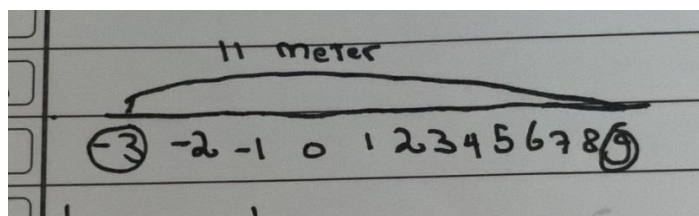 11 meter
-3 -2 -1 0 1 2 3 4 5 6 7 8 9